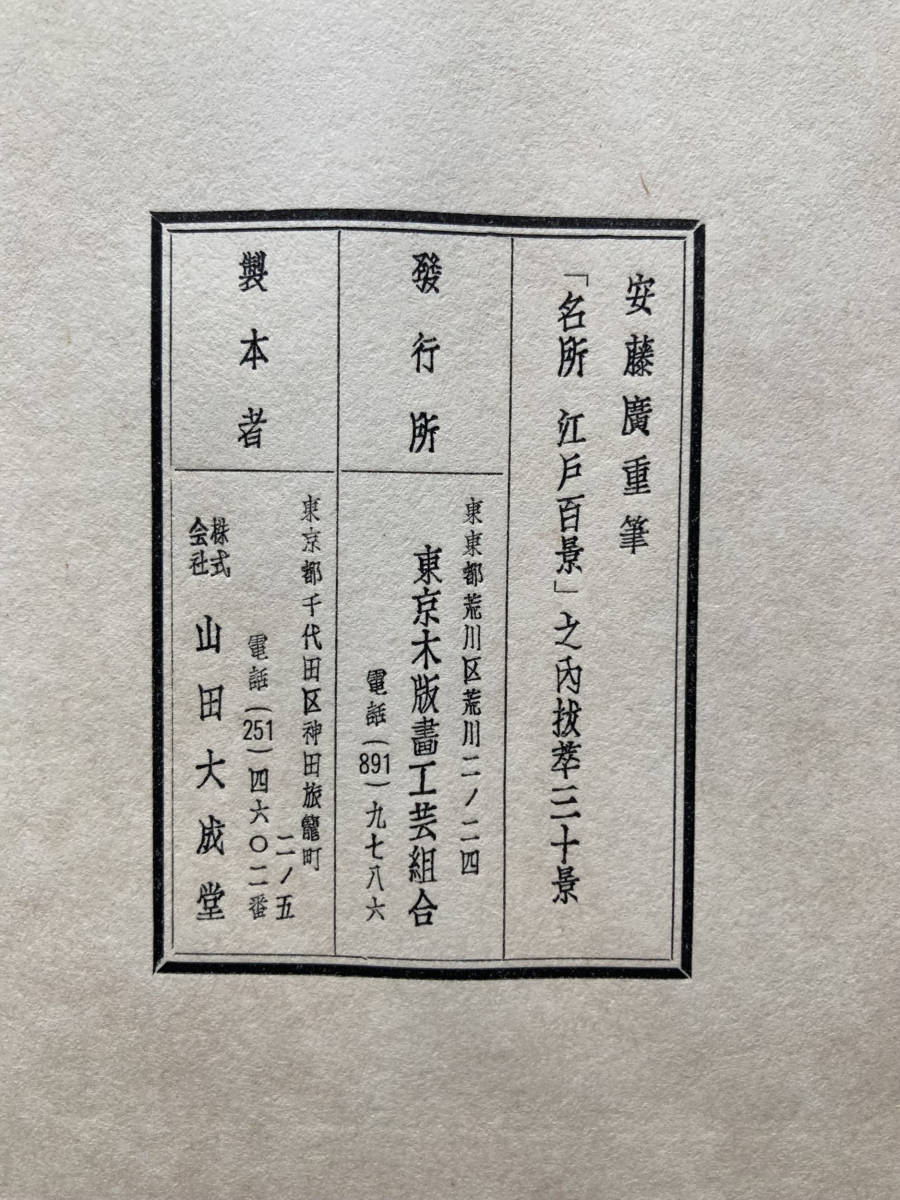 安藤廣重筆
「名所 江戸百景」之内抜萃三十景
發行所
東東都荒川区荒川二ノ二四
東京木版畵工芸組合
電話(891)九七八六
製本者
東京都千代田区神田旅籠町
二ノ五
電話(251)四六〇二番
株式会社 山田大成堂